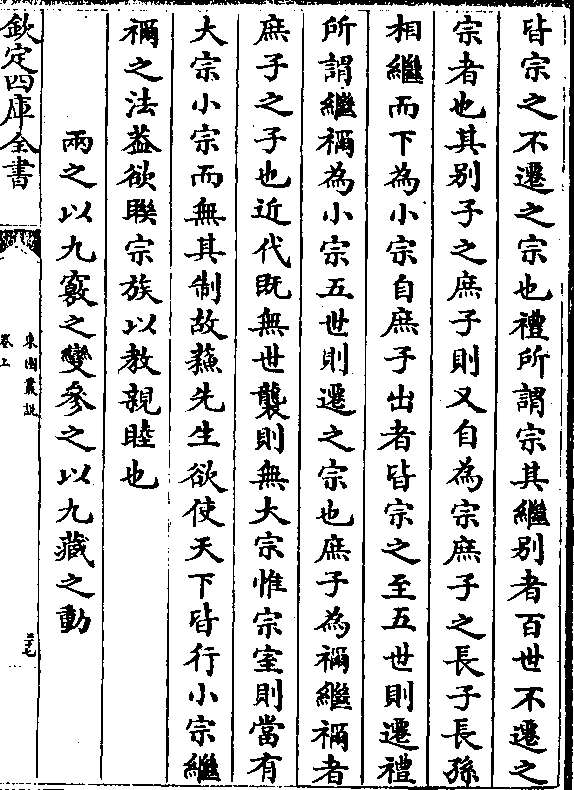 皆宗之不遷之宗也禮所謂宗其繼别者百世不遷之
宗者也其别子之庶子則又自為宗庶子之長子長孫
相繼而下為小宗自庶子出者皆宗之至五世則遷禮
所謂繼禰為小宗五世則遷之宗也庶子為禰繼禰者
庶子之子也近代既無世襲則無大宗惟宗室則當有
大宗小宗而無其制故蘓先生欲使天下皆行小宗繼
禰之法葢欲聨宗族以教親睦也
兩之以九竅之變參之以九藏之動
欽定四庫全書
東園叢説
卷上